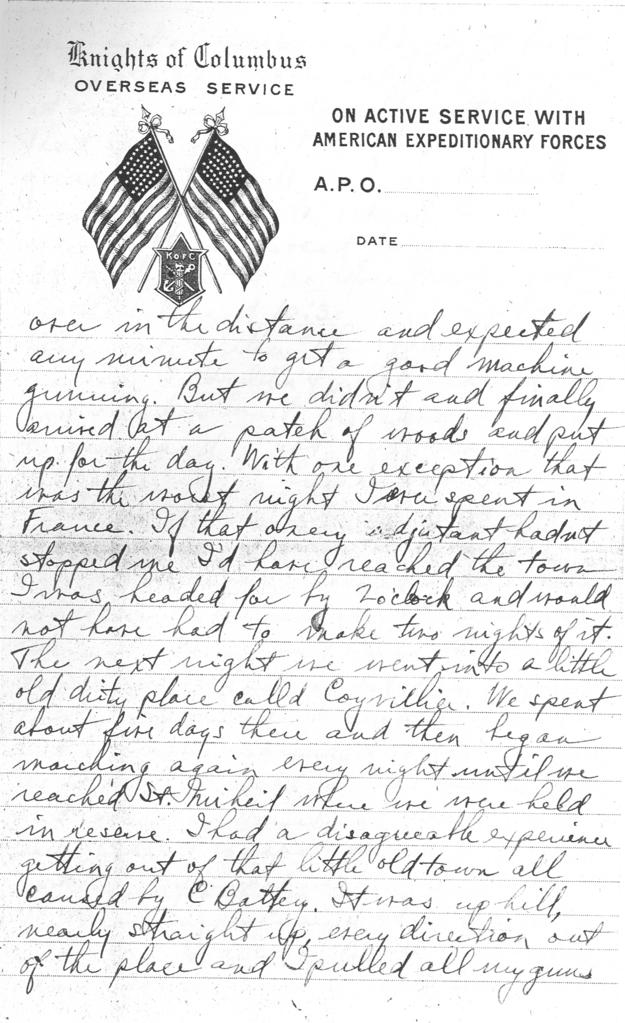 Knights of Columbus
OVERSEAS SERVICE
ON ACTIVE SERVICE WITH
AMERICAN EXPEDITIONARY FORCES
A.P.O.
DATE
K of C
over in the distance and expected
any minute to get a good machine
gunning. But we didn't and finally
arrived at a patch of woods and put
up for the day. With one exception that
was the worst night I ever spent in
France. If that adjutant hadnt
stopped me I'd have reached the town
I was headed for by 2 oclock and would
not have had to make two nights of it.
The next night we went into a little
old dirty place calld Coyvillier. We spent
about five days there and then began
marching again every night until we
reached St. Miheil where we were held
in reserve. I had a disagreeable experience
getting out of that little old town all
caused by C Battery. It was up hill,
nearly straight up, every direction out
of the place and I pulled all my guns